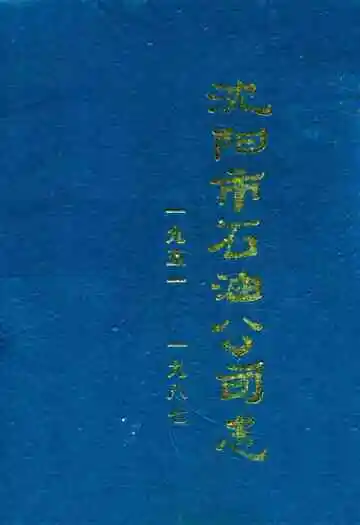 沈阳市石油公司志
一九五一 一九八七